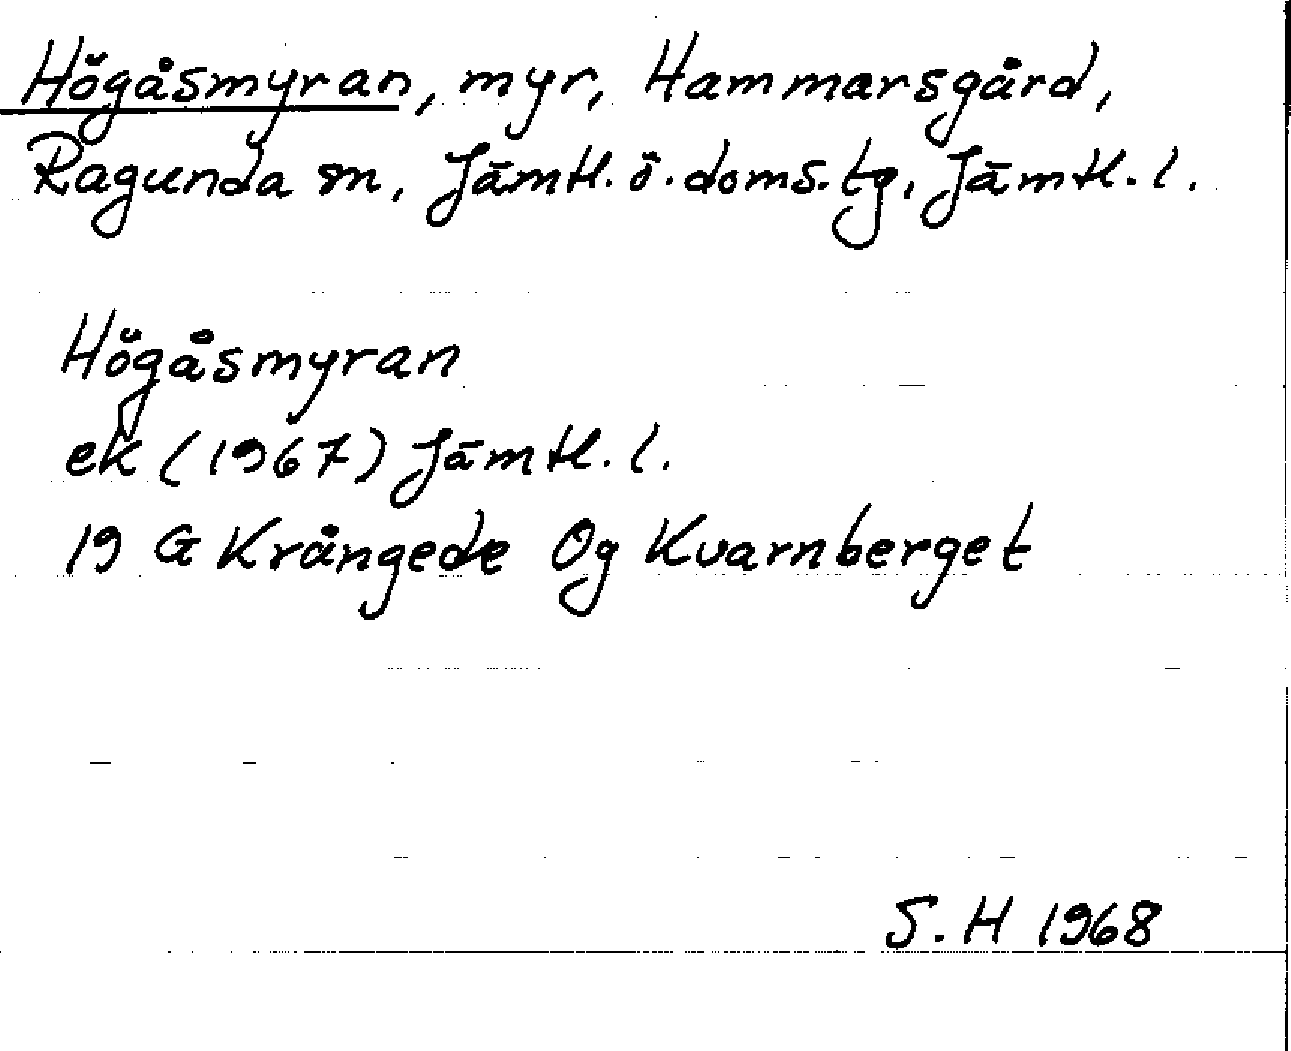 Högåsmyran, myr, Hammarsgård,
Ragunda sn, Jämtl. ö. doms. tg, Jämtl. l.
Högåsmyran
ek (1967) Jämtl. l.
19 G Krångede 0g Kvarnberget
S. H 1968